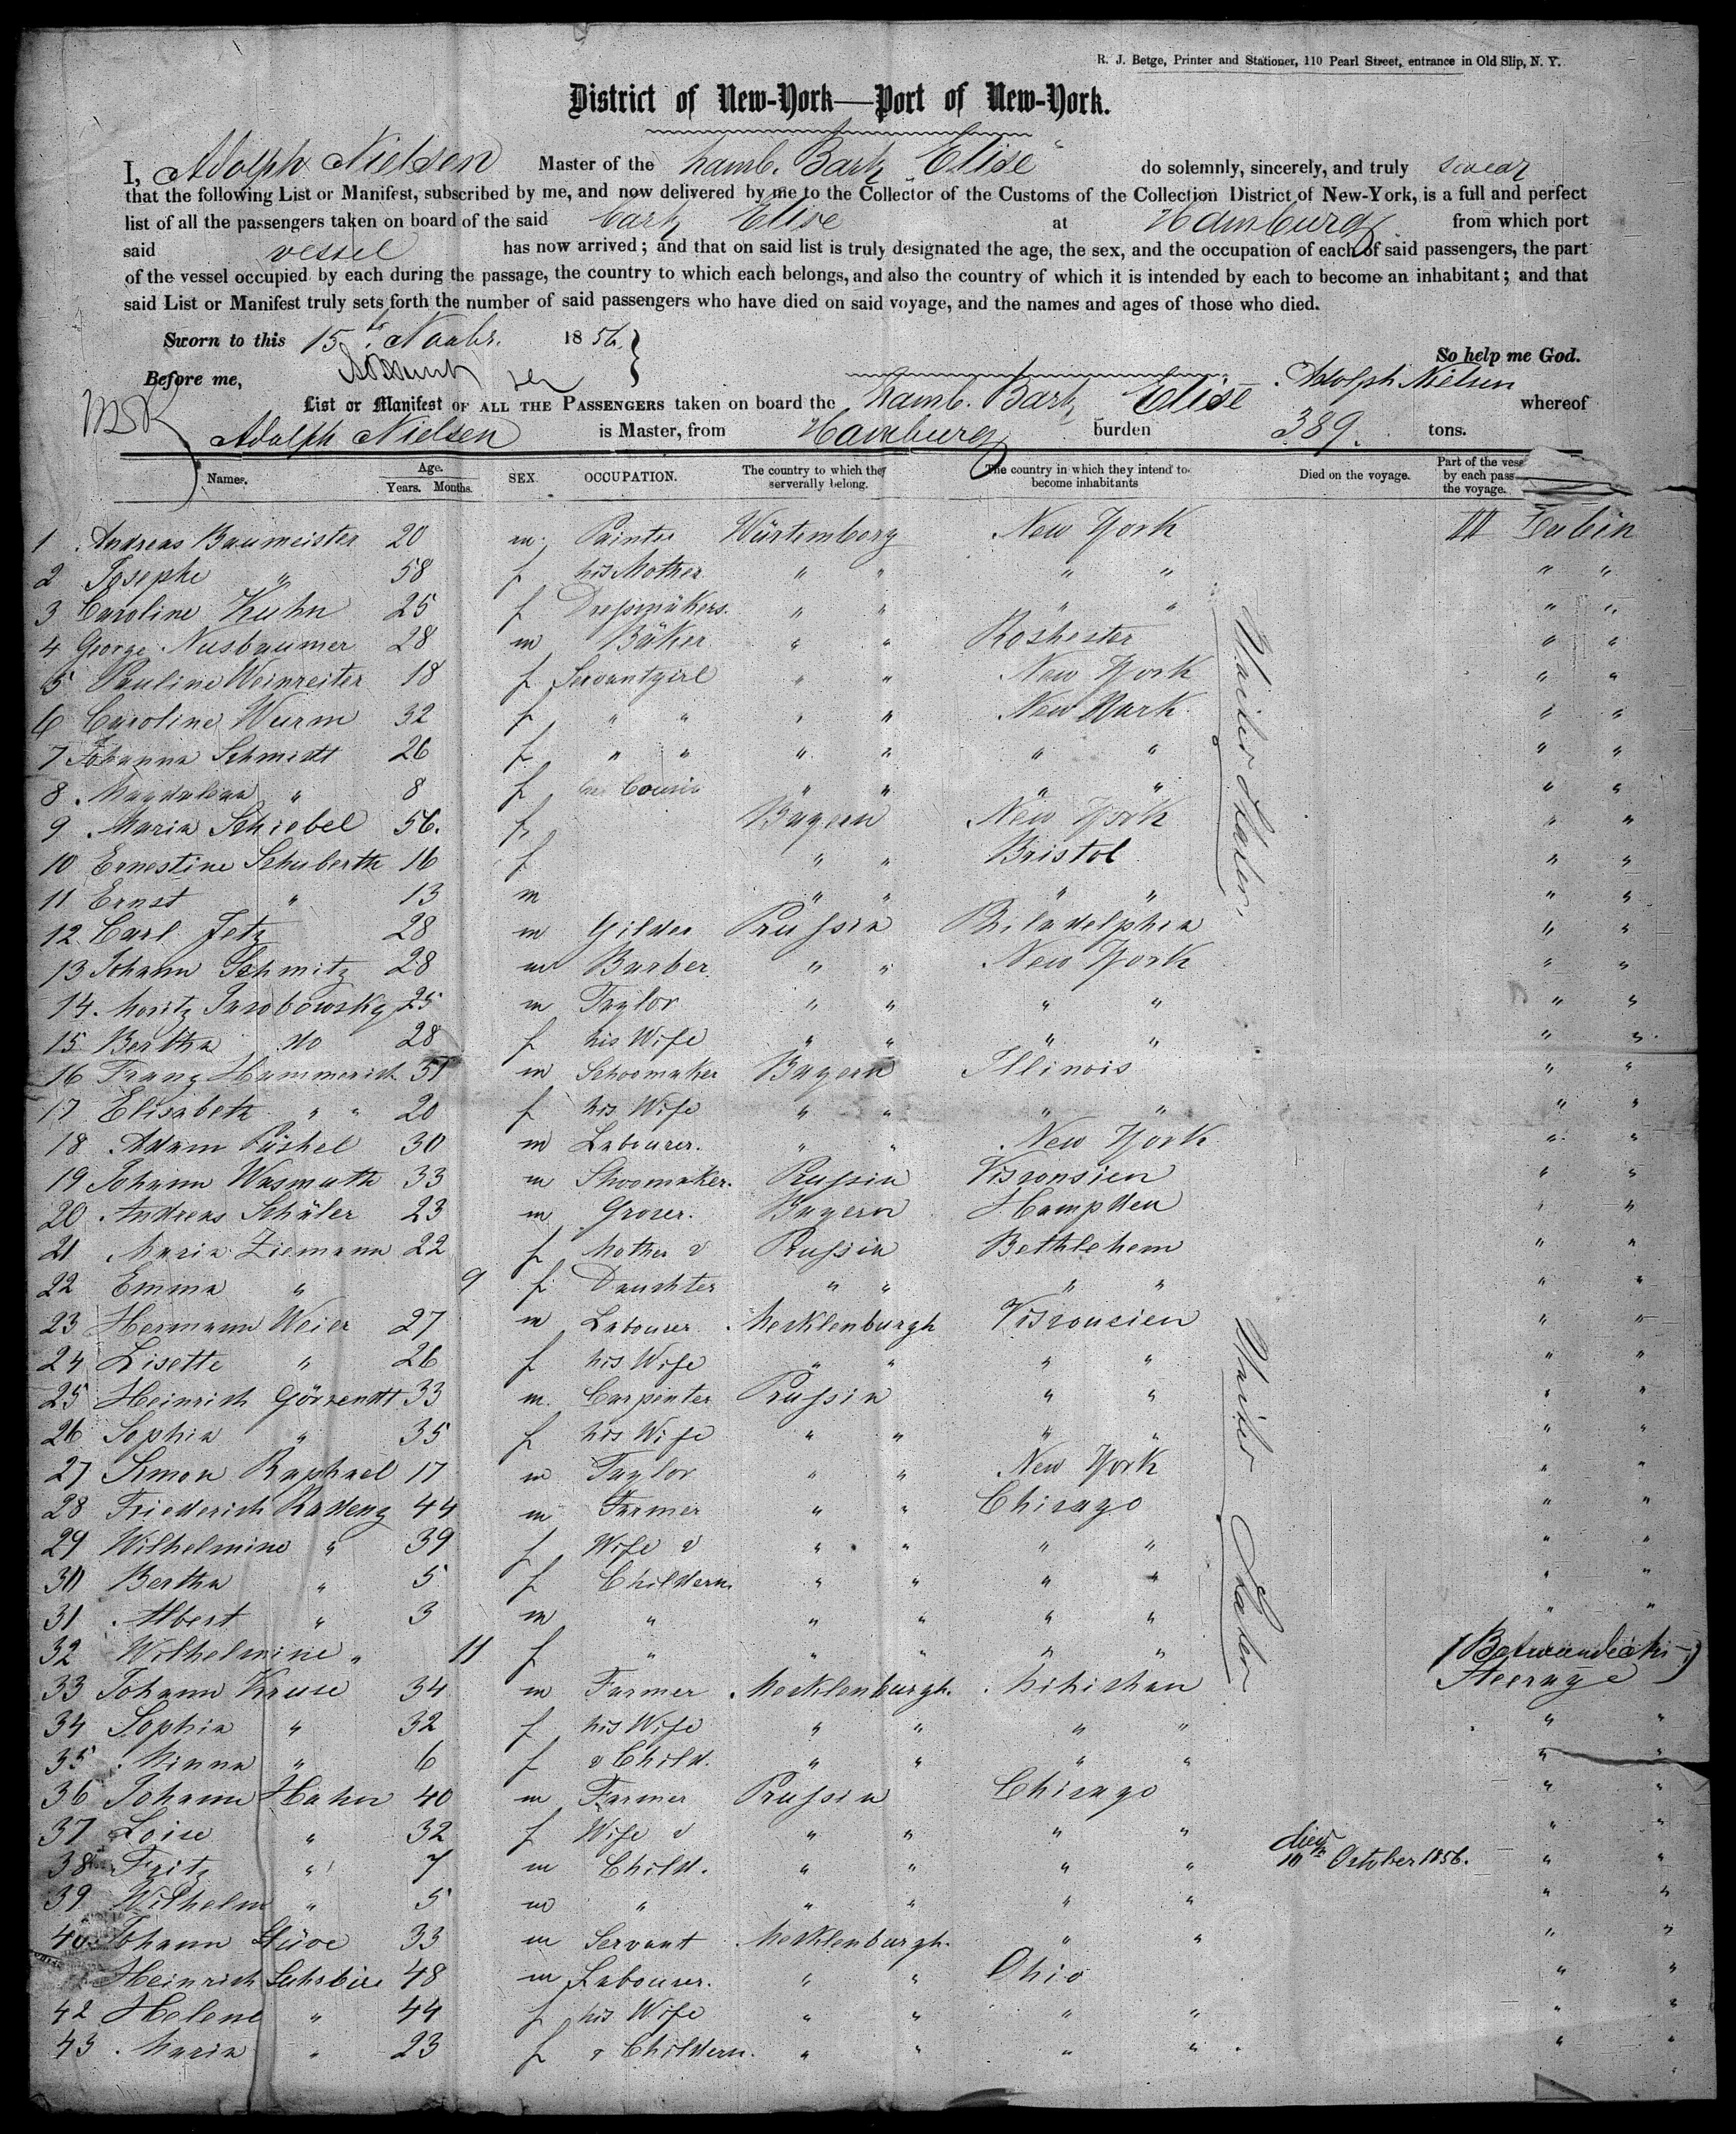 R. J. Betge, Printer and Stationer, 110 Pearl Street, entrance in Old Slip, N. Y.
District of New-York—Port of New-York.
I, Adolph Nielsen Master of the hamb. Bark "Elise" do solemnly, sincerely, and truly swear
that the following List or Manifest, subscribed by me, and now delivered by me to the Collector of the Customs of the Collection District of New-York, is a full and perfect
list of all the passengers taken on board of the said bark Elise at Hamburg from which port
said vessel has now arrived; and that on said list is truly designated the age, the sex, and the occupation of each of said passengers, the part
of the vessel occupied by each during the passage, the country to which each belongs, and also the country of which it is intended by each to become an inhabitant; and that
said List or Manifest truly sets forth the number of said passengers who have died on said voyage, and the names and ages of those who died.
Sworn to this 15th Novbr. 1856.
So help me God.
Before me, Adolph Nielsen
List or Manifest OF ALL THE PASSENGERS taken on board the hamb. Bark Elise whereof
Adolph Nielsen is Master, from Hamburg burden 389. tons.
Names. Age. Years. Months. SEX. OCCUPATION. The country to which they serverally belong. The country in which they intend to become inhabitants Died on the voyage. Part of the vesse by each pass the voyage.
1 Andreas Baumeister 20 m. Painter Würtemberg New York III Cabin
2 Josephe " 58 f his Mother " " " " " "
3 Caroline Kuhn 25 f Dressmakers. " " " " " "
4 George Nusbaumer 28 m Bäker " " Roshester " "
5 Pauline Weinreiter 18 f Servantgirl " " New York " "
6 Caroline Wurm 32 f " " " " New York " "
7 Johanna Schmidt 26 f " " " " " " " "
8 Magdalina " 8 f her Cousin " " " " " "
9 Maria Schiebel 56. f Bayern New York " "
10 Ernestine Schuberth 16 f " " Bristol " "
11 Ernst " 13 m " " " " " "
12 Carl Jetz 28 m Gilder Prussia Philadelphia " "
13 Johann Schmitz 28 m Barber " " New York " "
14 Moritz Jacobowsky 25 m Taylor " " " " " "
15 Bertha do 28 f his Wife " " " " " "
16 Franz Hammerich 31 m Schoomaker Bayern Illinois " "
17 Elisabeth " " 20 f his Wife " " " " " "
18 Adam Püshel 30 m Labourer. " " New York " "
19 Johann Wasmuth 33 m Shoomaker. Prussia Visconsien " "
20 Andreas Schüler 23 m Grocer. Bayern Hampden " "
21 Maria Ziemann 22 f Mother & Prussia Bethlehem " "
22 Emma " 9 f Daughter " " " " " "
23 Hermann Weier 27 m Labourer Mecklenburgh Visconsien " "
24 Lisette " 26 f his Wife " " " " " "
25 Heinrich 33 m. Carpinter Prussia " " " "
26 Sophia " 35 f his Wife " " " " " "
27 Simon Raphael 17 m Taylor " " New York " "
28 Friederich Radenz 44 m Farmer " " Chicago " "
29 Wilhelmine " 39 f Wife & " " " " " "
30 Bertha " 5 f Childern " " " " " "
31 Albert " 3 m " " " " " " "
32 Wilhelmine " 11 f " " " " "
33 Johann Kruse 34 m Farmer Mecklenburgh. Mihichan Steerage
34 Sophia " 32 f his Wife " " " " " "
35 Minna " 6 f & Child. " " " " " "
36 Johann Hahn 40 m Farmer Prussia Chicago " "
37 Loise " 32 f Wife & " " " " " "
38 Fritz " 7 m Child. " " " " died 10th October 1856. " "
39 Wilhelm " 5 m " " " " " " "
40 Johann 33 m Servant Mecklenburgh. " " " "
Heinrich 48 m Labourer. " " Ohio " "
42 Helene " 44 f his Wife " " " " " "
43 Maria " 23 f & Childern. " " " " " "
United States.
United States